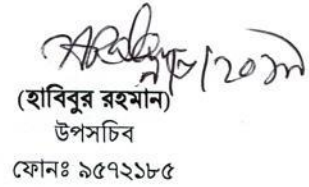 (হাবিবুর রহমান)
উপসচিব
ফোনঃ ৯৫৭২১৮৫